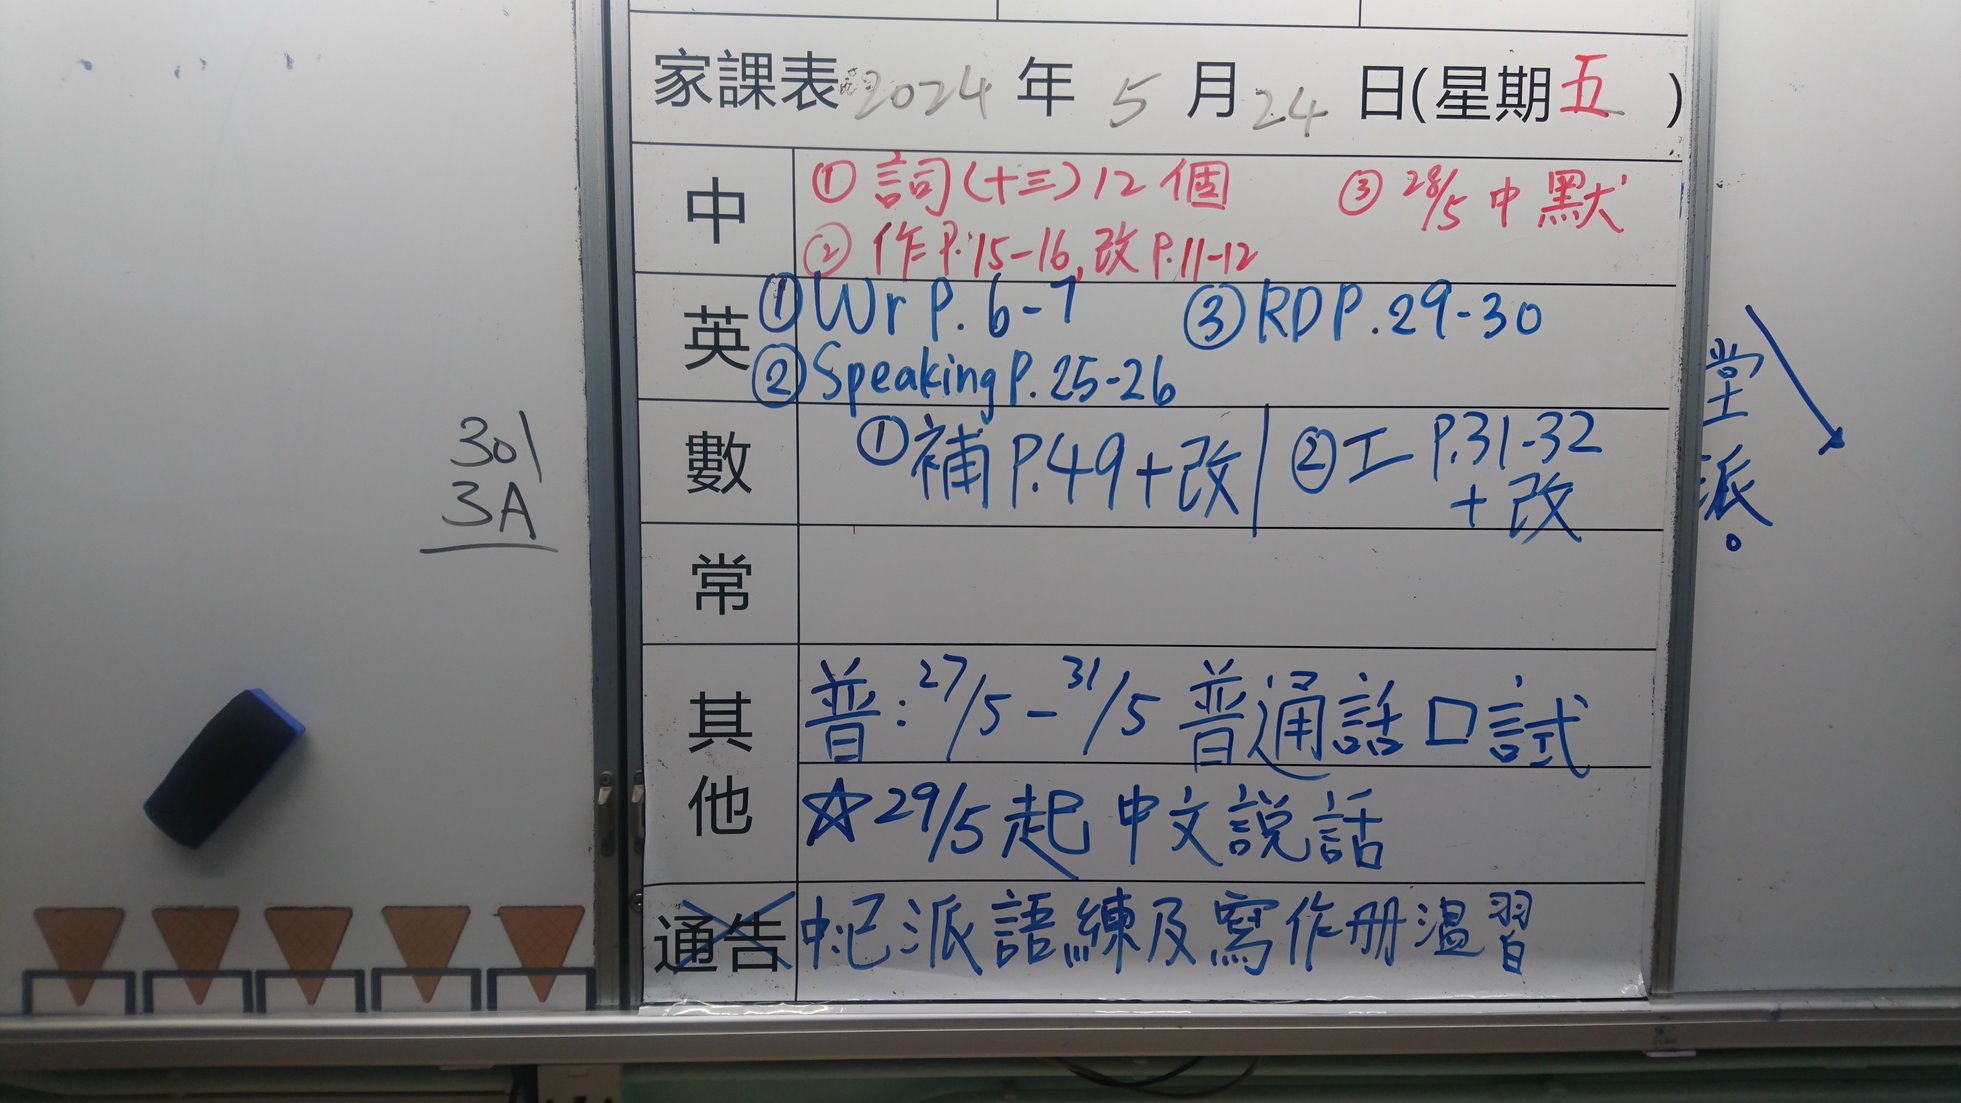 家課表 2024 年 5 月 24 日(星期五)
中
① 詞(十三)12個 ③ 28/5 中默
② 作P.15-16,改P.11-12
英
① Wr P. 6-7 ③ RD P. 29-30
② Speaking P. 25-26
數
① 補 P.49+改 ② 工 P.31-32
+改
常
其他
普:27/5-31/5 普通話口試
☆29/5起中文說話
通告
中:已派語練及寫作冊溫習
301
3A
堂
派。